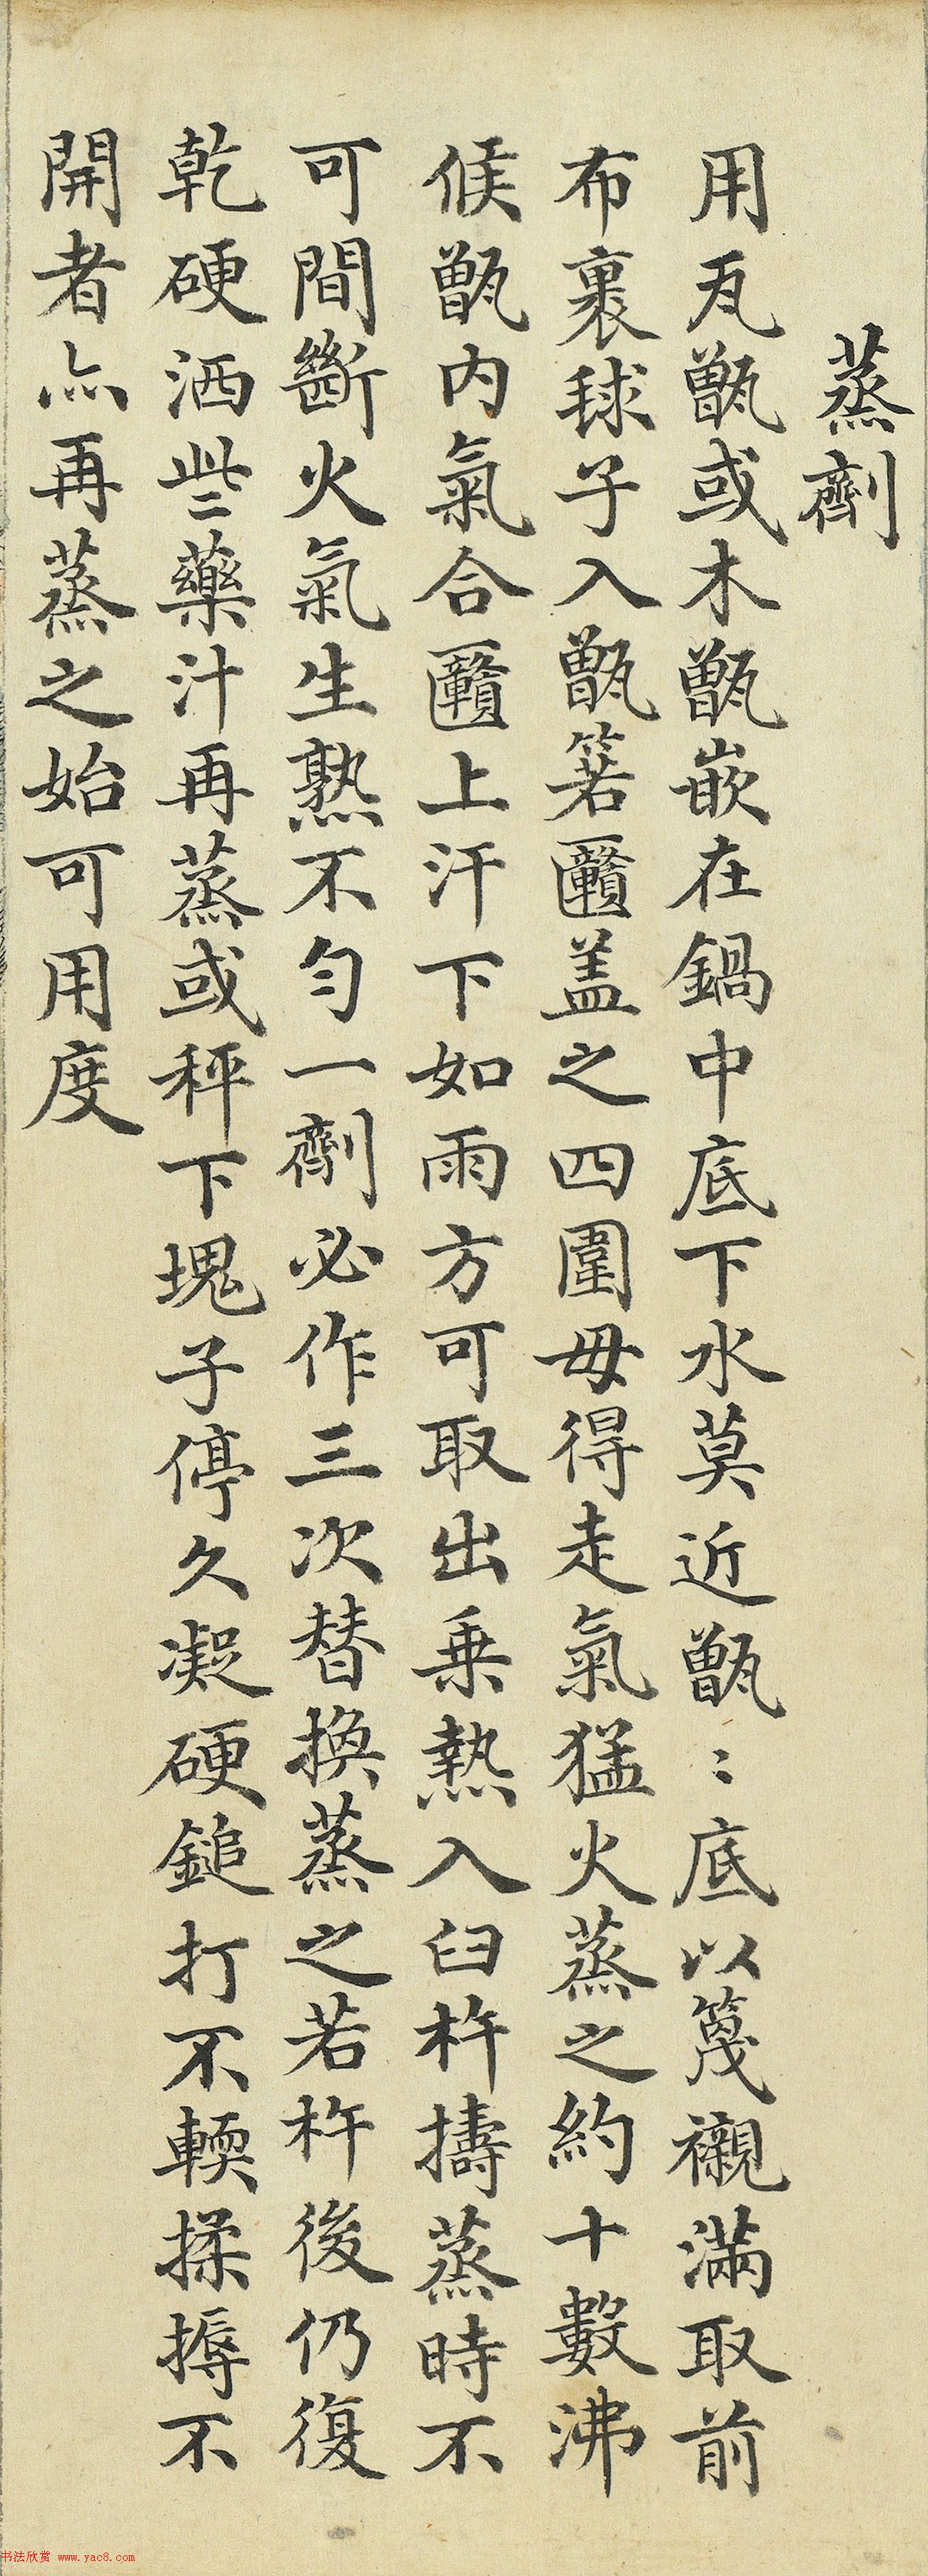 蒸劑
用瓦甑或木甑嵌在鍋中底下水莫近甑〻底以篾襯滿取前
布裹球子入甑箬匶盖之四圍毋得走氣猛火蒸之約十數沸
候甑内氣合匶上汗下如雨方可取出乗熱入臼杵擣蒸時不
可間斷火氣生熟不勻一劑必作三次替換蒸之若杵後仍復
乾硬洒些藥汁再蒸或秤下塊子停久凝硬鎚打不輭揉搙不
開者亦再蒸之始可用度
书法欣赏 www.yac8.com